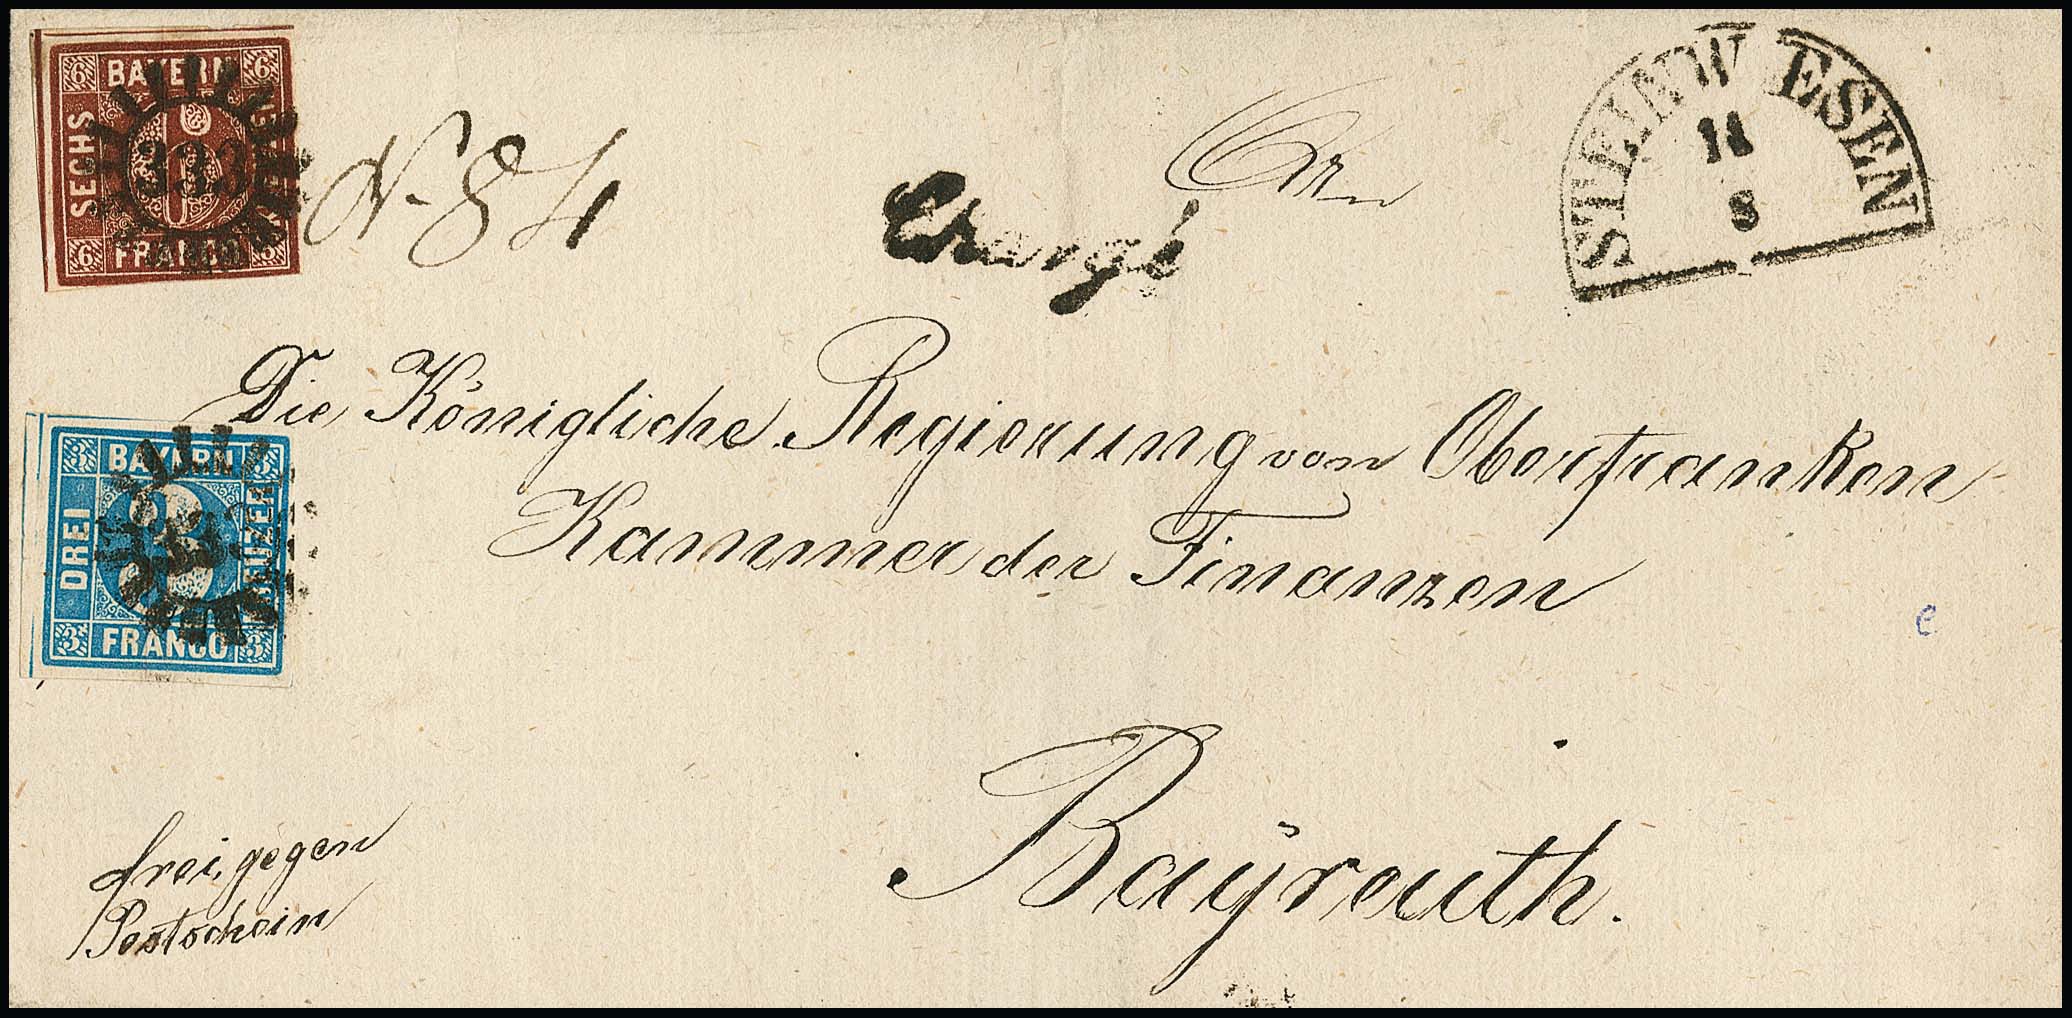 6 BAYERN 6
SECHS
FRANCO
6
333
N. 84
Chargé
STEINWIESEN
11
8
Die Königliche Regierung von Oberfranken
Kammer der Finanzen
Bayreuth.
3 BAYERN 3
DREI
KREUZER
3 FRANCO 3
frei, gegen
Postschein
e